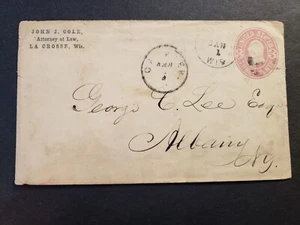 JOHN J. COLE,
Attorney at Law,
LA CROSSE, Wis.
JAN
1
WIS
George C. Lee Esq
Albany
N.Y.